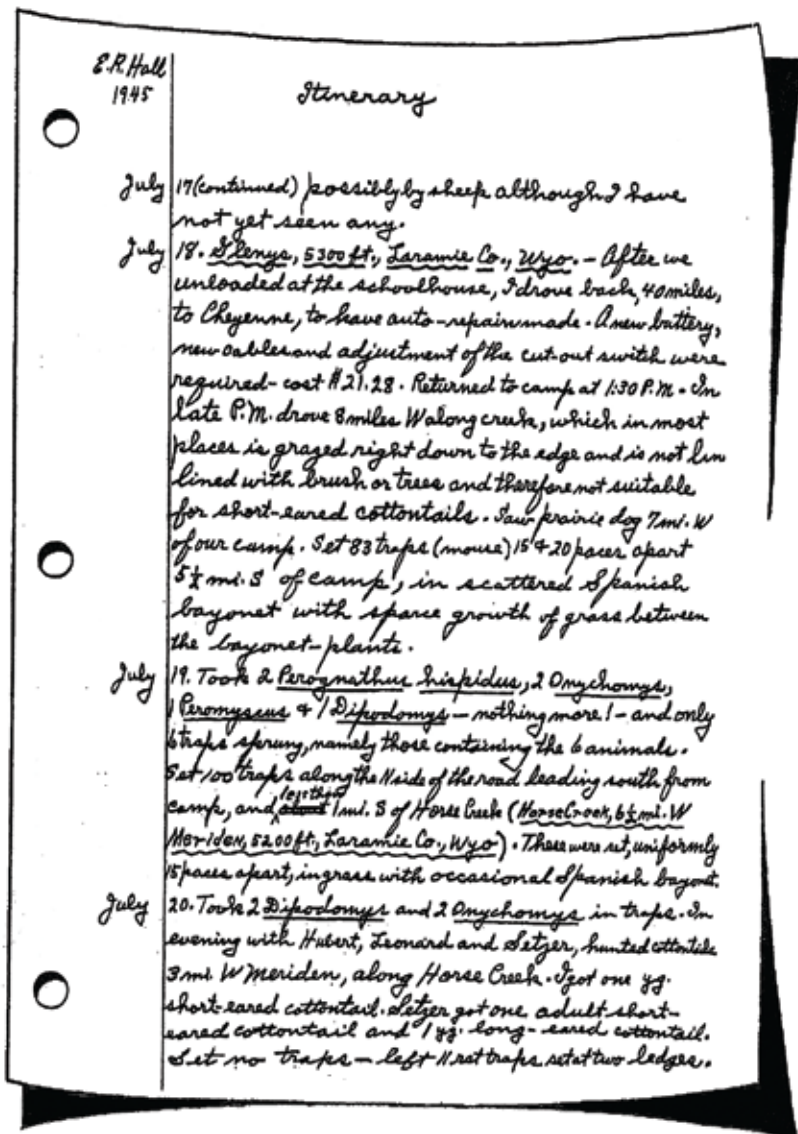 E.R. Hall
1945
Itinerary
July 17 (continued) possibly by sheep although I have
not yet seen any.
July 18. Glenys, 5300 ft., Laramie Co., Wyo. – After we
unloaded at the schoolhouse, I drove back, 40 miles,
to Cheyenne, to have auto-repair made. A new battery,
new cables and adjustment of the cut-out switch were
required – cost $21.28. Returned to camp at 1:30 P.M. – In
late P.M. drove 8 miles W along creek, which in most
places is grazed right down to the edge and is not lin
lined with brush or trees and therefore not suitable
for short-eared cottontails. Saw prairie dog 7 mi. W
of our camp. Set 83 traps (mouse) 15 & 20 paces apart
5½ mi. S of camp, in scattered Spanish
bayonet with sparce growth of grass between
the bayonet-plants.
July 19. Took 2 Perognathus hispidus, 2 Onychomys,
1 Peromyscus & 1 Dipodomys – nothing more! – and only
6 traps sprung, namely those containing the 6 animals.
Set 100 traps along the N side of the road leading south from
camp, and less than 1 mi. S of Horse Creek (Horse Creek, 6½ mi. W
Meriden, 5200 ft., Laramie Co., Wyo). These were set, uniformly
15 paces apart, in grass with occasional Spanish bayonet.
July 20. Took 2 Dipodomys and 2 Onychomys in traps. In
evening with Hubert, Leonard and Setzer, hunted cottontails
3 mi W Meriden, along Horse Creek. I got one yg.
short-eared cottontail. Setzer got one adult short-
eared cottontail and 1 yg. long-eared cottontail.
Set no traps – left 11 rat traps set at two ledges.